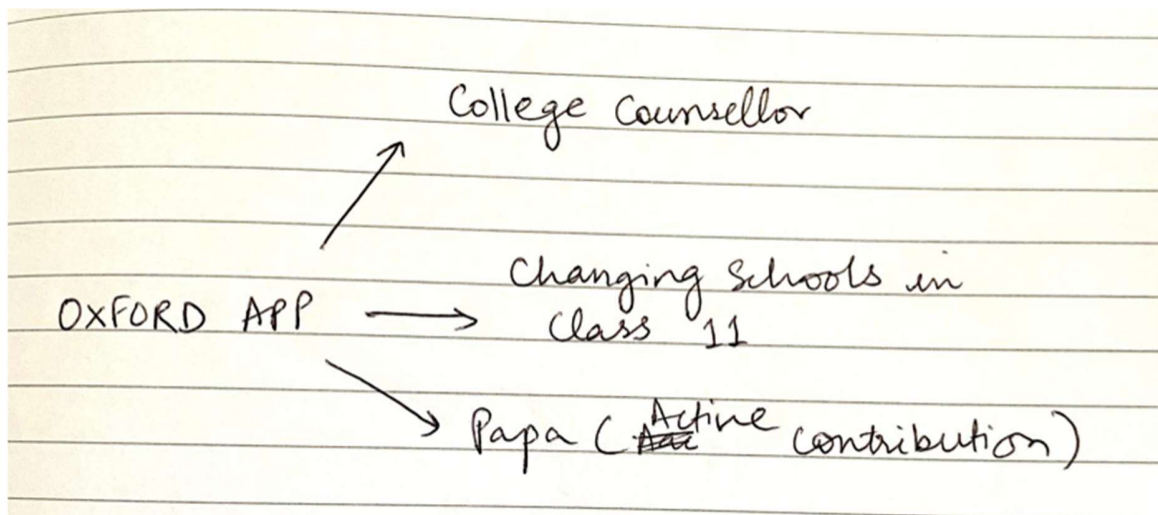 College Counsellor
OXFORD APP
Changing Schools in
Class 11
Papa (Active contribution)